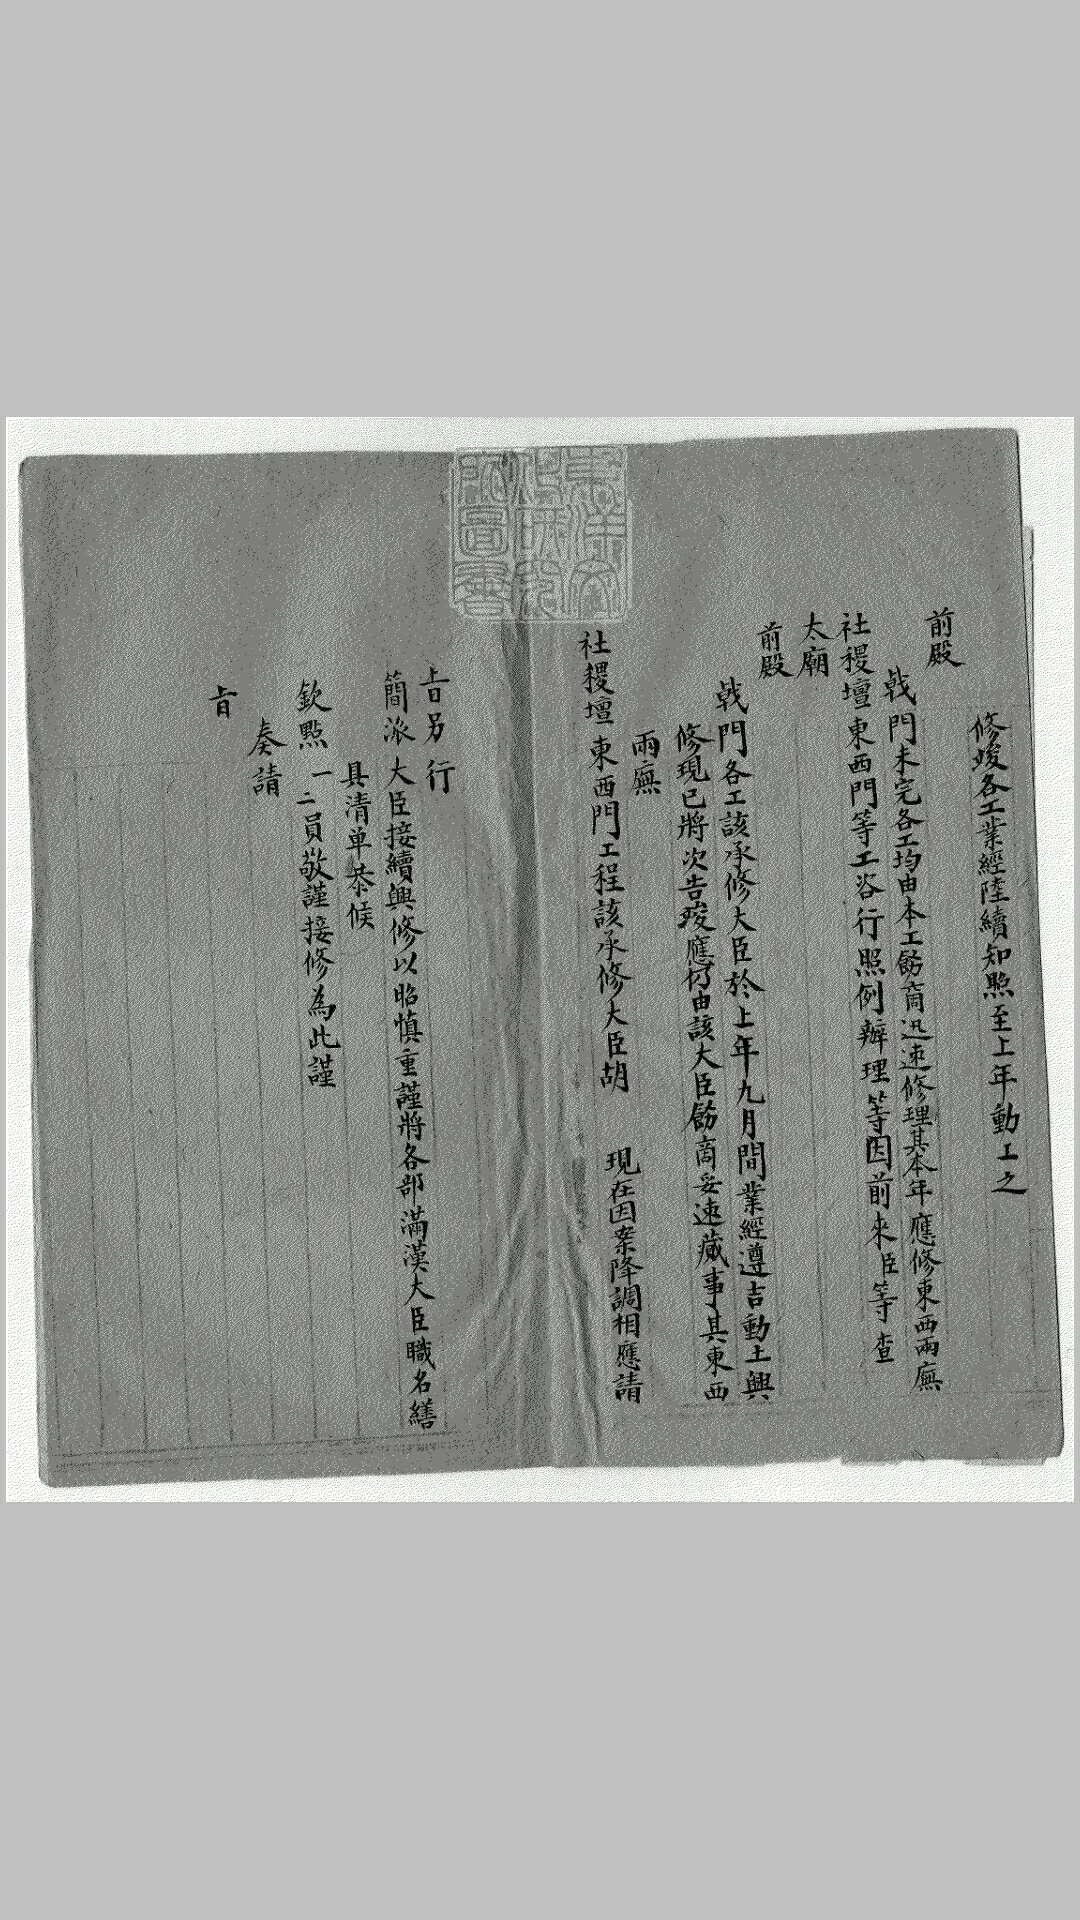 修竣各工業經陸續知照至上年動工之
前殿
戟門未完各工均由本工飭商迅速修理其本年應修東西兩廡
社稷壇東西門等工咨行照例辦理等因前來臣等查
太廟
前殿
戟門各工該承修大臣於上年九月間業經遵吉動土興
修現已將次告竣應仍由該大臣飭商妥速蕆事其東西
兩廡
社稷壇東西門工程該承修大臣胡 現在因案降調相應請
旨另行
簡派大臣接續興修以昭慎重謹將各部滿漢大臣職名繕
具清单恭候
欽點一二員敬謹接修為此謹
奏請
旨
東洋文
化研究
所圖書